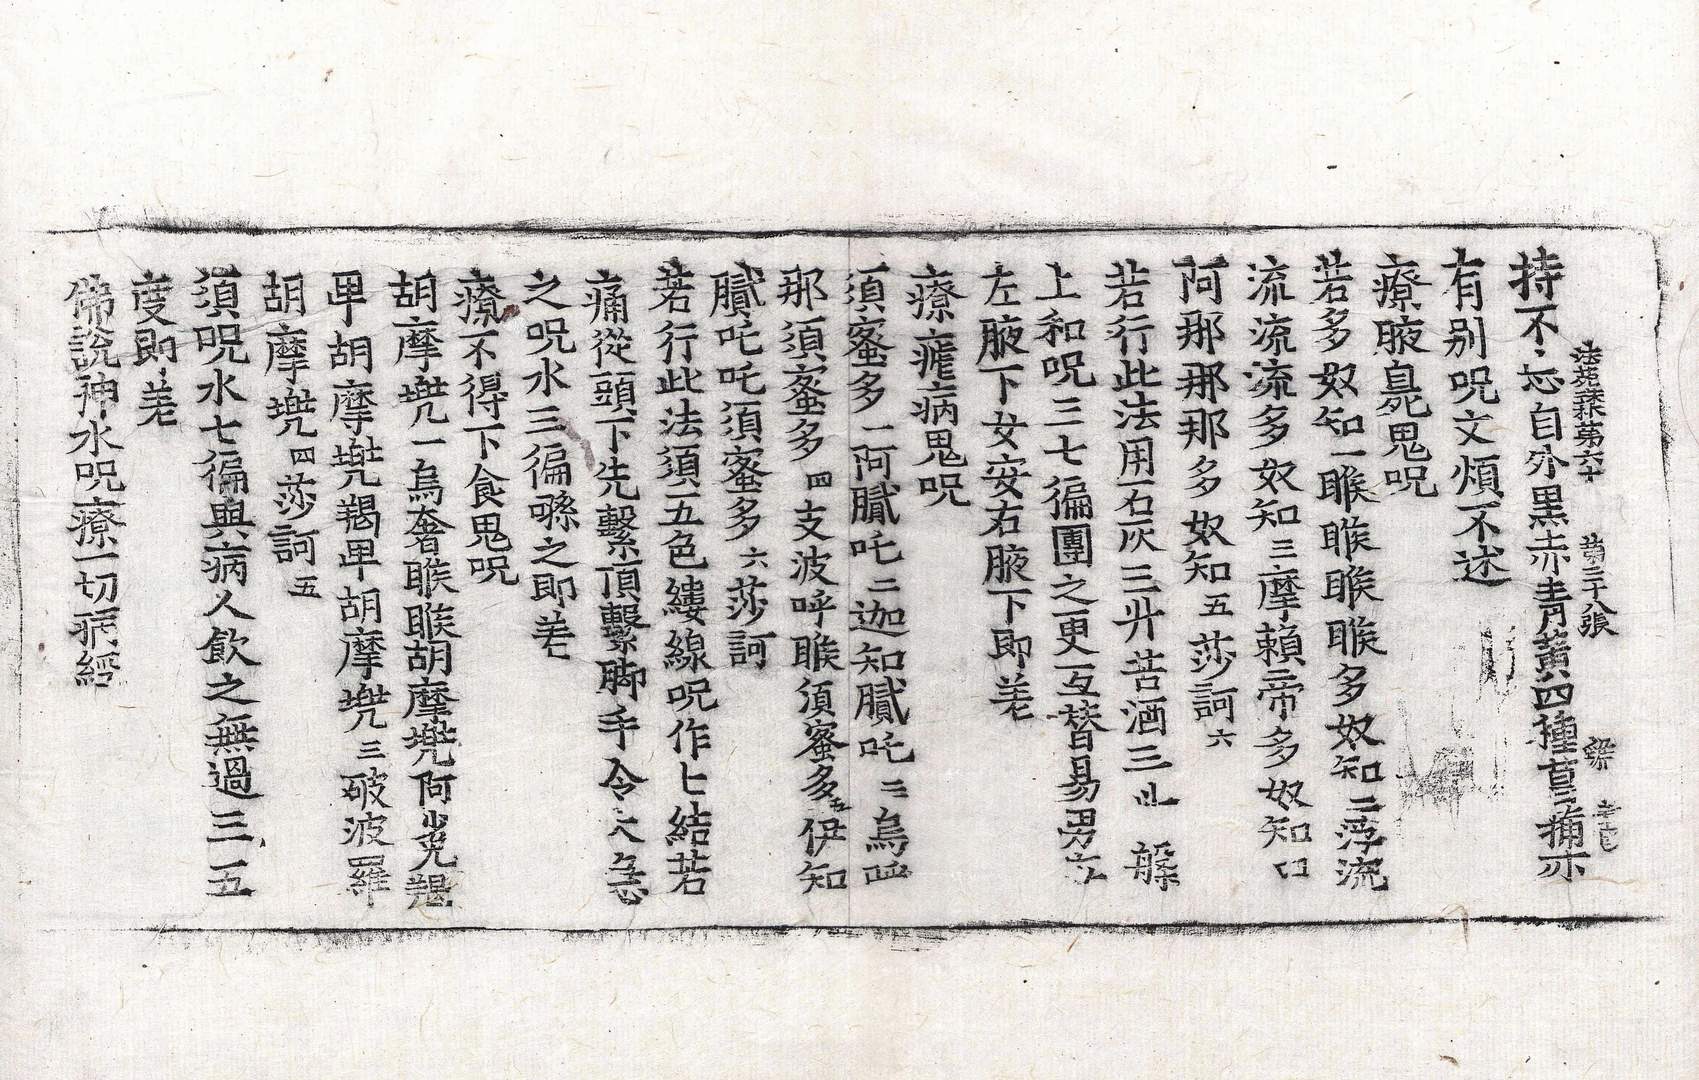 法苑珠林第六十 第三十八張
持不忘自外黑赤青黃四種莫痛亦
有別呪文煩不述
療腋臭鬼呪
若多奴知一睺睺睺睺多奴知二浮流
流流流多奴知三摩賴帝多奴知四
阿那那那多奴知五莎訶六
若行此法用石灰三升苦酒三升 躱
上和呪三七徧團之更互替易男安
左腋下女安右腋下即差
療瘧病鬼呪
須蜜多一阿膩吒二迦知膩吒三烏呼
那須蜜多四支波呼睺須蜜多五伊知
膩吒吒須蜜多六莎訶
若行此法須五色縷線呪作七結若
痛從頭下先繫頂繫腳手令人急
之呪水三徧噀之即差
療不得下食鬼呪
胡摩兠一烏奢睺睺胡摩兠阿兠羯
卑胡摩兠羯卑胡摩兠三破波羅
胡摩兠四莎訶五
須呪水七徧與病人飲之無過三五
度即差
佛說神水呪療一切病經